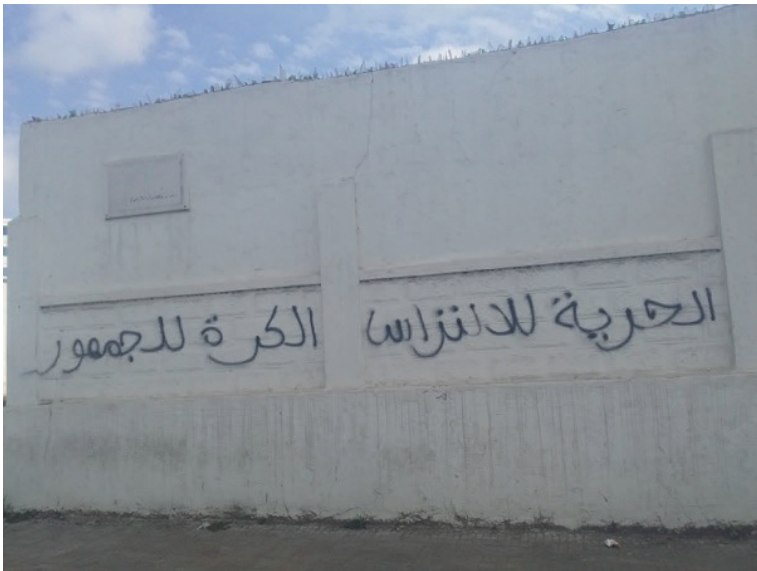 الحرية للالتراس الكرة للجمهور